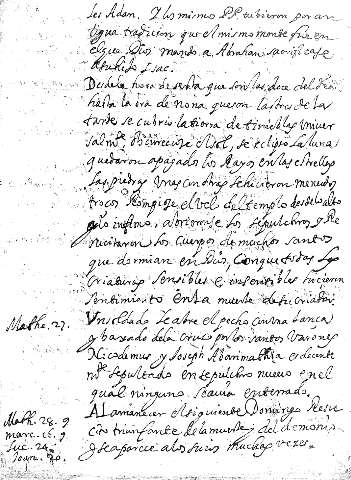 sei Adan. Y los mismo PP tubieron por an
tigua tradicion que el mismo monte fue en
el que Dios mando a Abrahan sacrificase
a su hijo Isac.
Desde la hora de sexta que son las doce del dia
hasta la ora de nona que son las tres de la
tarde se cubrio la tierra de tinieblas univer
salmte, obscureciose el sol, se eclipso la luna
quedaron apagados los Rayos en las estrellas
las piedras unas con otras se hicieron menudos
trocos Rompiose el vel del templo desde lo alto
a lo infimo, abrieronse los sepulchros y Re
sucitaron los Cuerpos de muchos santos
que dormian en Dios, Conque todas las
criaturas sensibles e insensibles hicieron
sentimiento en la muerte de su criador.
Mathe. 27.
Un soldado le abre el pecho con una lanca
y baxado de la Cruz por los santos Varones
Nicodemus y Joseph Abarimathia es decente
mte sepultado en sepulcro nuevo en el
qual ninguno se avia enterrado.
Math. 28. 9
marc. 16. 9
luc. 24.
Joan. 20.
Al amanecer el siguiente Domingo Resu
cito triunfante de la muerte y del demonio
y se aparecio a los suios muchas vezes.